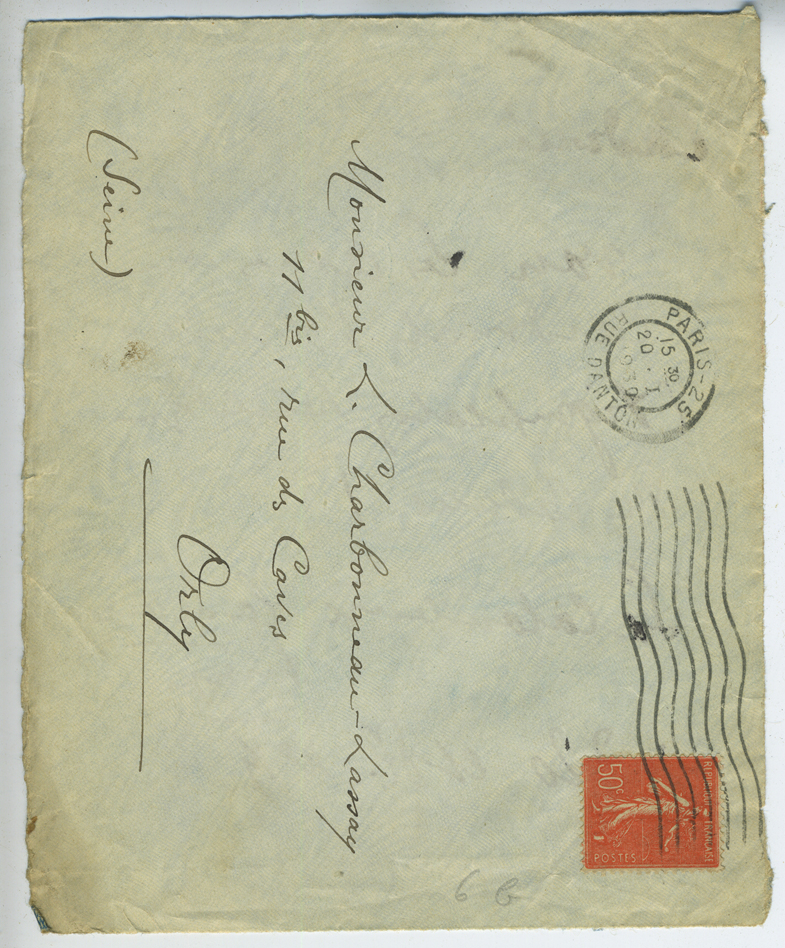 PARIS-25
15 30
20 . I
1930
RUE DANTON
REPUBLIQUE FRANÇAISE
50c
POSTES
Monsieur L. Charbonneau-Lassay
11 bis, rue des Caves
Orly
(Seine)
6 b